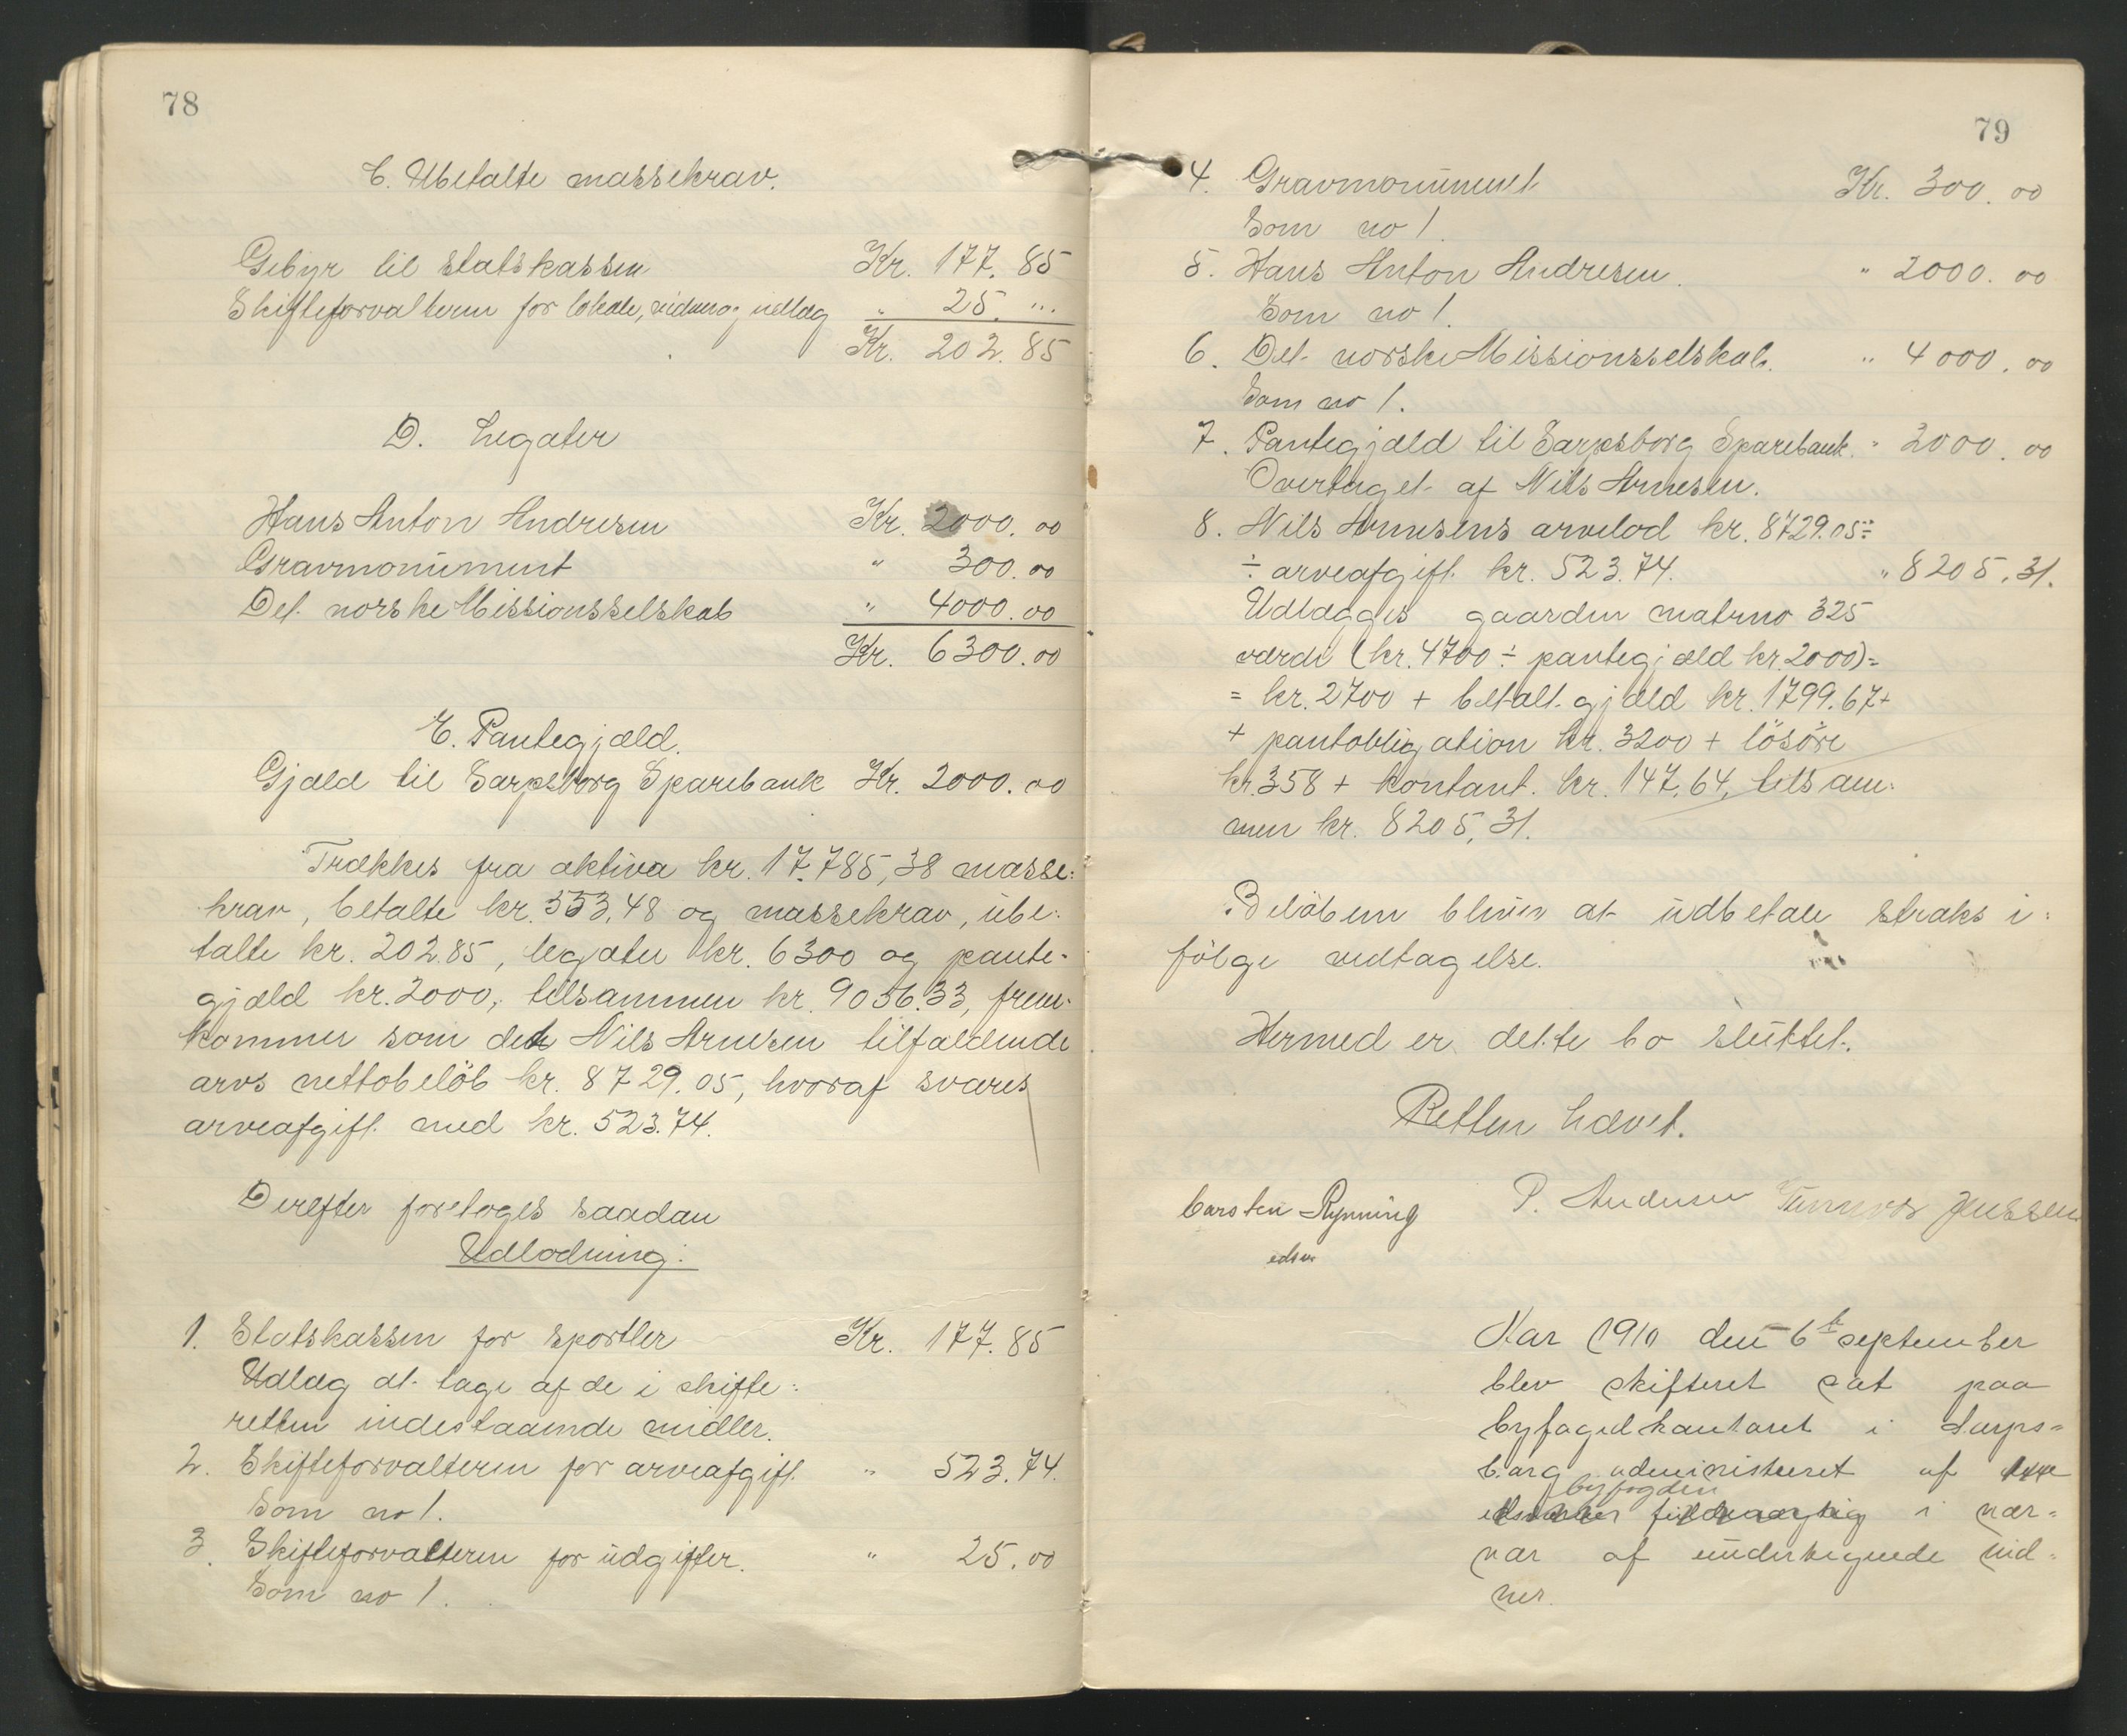 78
C. Ubetalte massekrav.
Gebyr til statskassen Kr. 177.85
Skifteforvalteren for lokale, vidner og indlæg " 25. "
Kr. 202.85
D. Legater
Hans Anton Andresen Kr. 2000.00
Gravmonument " 300.00
Det norske Missionsselskab " 4000.00
Kr. 6300.00
E. Pantegjæld.
Gjæld til Sarpsborg Sparebank Kr. 2000.00
Trækkes fra aktiva kr. 17.785,38 masse-
krav, betalte kr. 553,48 og massekrav, ube-
talte kr. 202.85, legater kr. 6300 og pante-
gjæld kr. 2000, tilsammen kr. 9056.33, frem-
kommer som den Nils Arnesen tilfaldende
arvs nettobeløb kr. 8729.05, hvoraf svares
arveafgift med kr. 523.74.
Derefter foretoges saadan
Udlodning:
1. Statskassen for sportler Kr. 177.85
Udlæg at tage af de i skifte-
retten indestaaende midler.
2. Skifteforvalteren for arveafgift " 523.74.
Som no 1.
3. Skifteforvalteren for udgifter. " 25.00
Som no 1.
79
4. Gravmonument Kr. 300.00
Som no 1.
5. Hans Anton Andresen. " 2000.00
Som no 1.
6. Det norske Missionsselskab. " 4000.00
Som no 1.
7. Pantegjæld til Sarpsborg Sparebank. " 2000.00
Overtaget af Nils Arnesen.
8. Nils Arnesens arvelod kr. 8729.05 ÷
÷ arveafgift kr. 523.74. " 8205,31.
Udlægges gaarden matrno 325
værdi (kr. 4700 ÷ pantegjæld kr. 2000) =
= kr. 2700 + betalt gjæld kr. 1799.67 +
+ pantobligation kr. 3200 + løsøre
kr. 358 + kontant kr. 147,64, tilsam-
men kr. 8205,31.
Beløbene bliver at udbetale straks i-
følge vedtagelse.
Hermed er dette bo sluttet.
Retten hævet.
Carsten Rynning P. Andersen Gunnvor Jenssen
edsv.
Aar 1910 den 6te september
blev skifteret sat paa
byfogedkontoret i Sarps-
borg administreret af
byfogden
i nær-
vær af undertegnede vid-
ner.